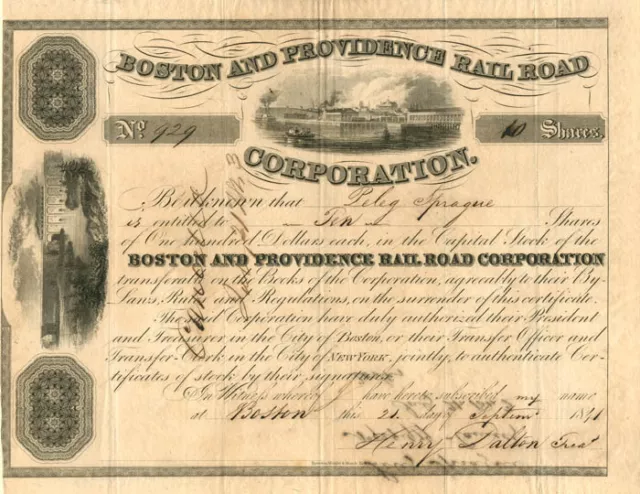 BOSTON AND PROVIDENCE RAIL ROAD
No. 929
10 Shares.
CORPORATION.
Be it known that Peleg Sprague
is entitled to Ten Shares
of One hundred Dollars each, in the Capital Stock of the
BOSTON AND PROVIDENCE RAIL ROAD CORPORATION
transferable on the Books of the Corporation, agreeably to their By-
Laws, Rules and Regulations, on the surrender of this certificate.
The said Corporation have duly authorized their President
and Treasurer in the City of Boston, or their Transfer Officer and
Transfer-Clerk in the City of NEW YORK, jointly, to authenticate Cer-
tificates of stock by their signatures.
In Witness whereof I have hereto subscribed my name
at Boston this 21 day Septem 1841
Henry Dalton Treas